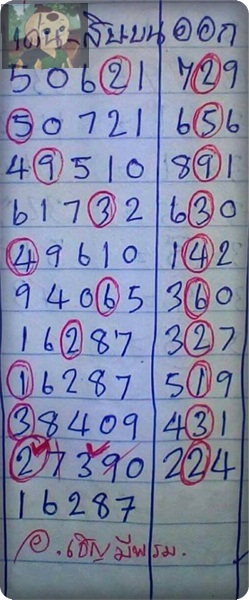 เด่น สิบบน ออก
50621 729
50721 656
49510 891
61732 630
49610 142
94065 360
16287 327
16287 519
38409 431
27390 224
16287
อ.เชิญ มีพรม.